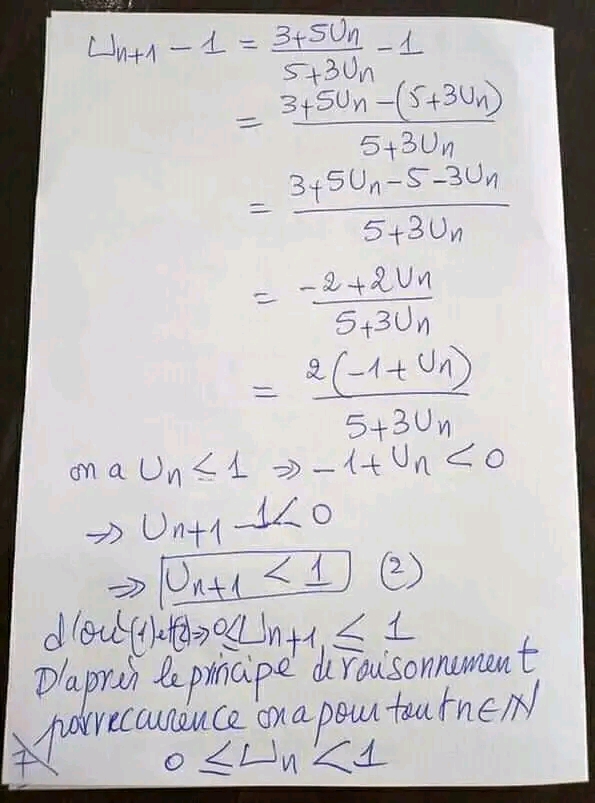 Un+1 - 1 = (3+5Un)/(5+3Un) - 1
= (3+5Un-(5+3Un))/(5+3Un)
= (3+5Un-5-3Un)/(5+3Un)
= (-2+2Un)/(5+3Un)
= 2(-1+Un)/(5+3Un)
on a Un ≤ 1 ⇒ -1+Un < 0
⇒ Un+1 - 1 < 0
⇒ Un+1 < 1 (2)
d'où (1) et (2) ⇒ 0 ≤ Un+1 ≤ 1
D'après le principe de raisonnement
par reccurence on a pour tout n ∈ IN
0 ≤ Un < 1